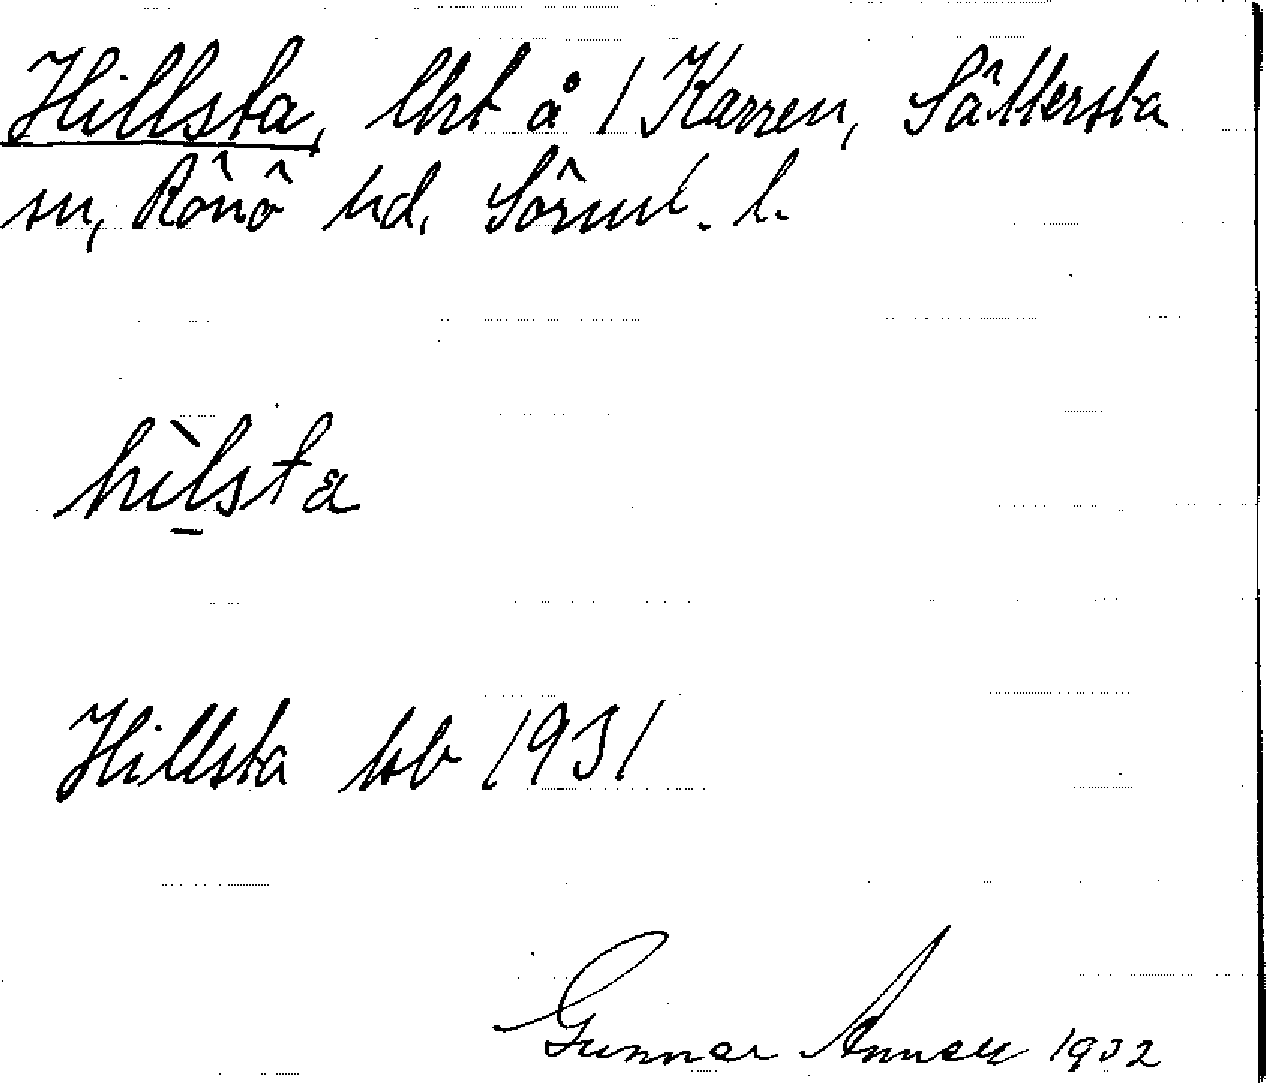 Hillsta, lht å 1 Karren, Sättersta
sn, Rönö hd. Sörml. l.
hìlsta
Hillsta kb 1931
Gunnar 1932